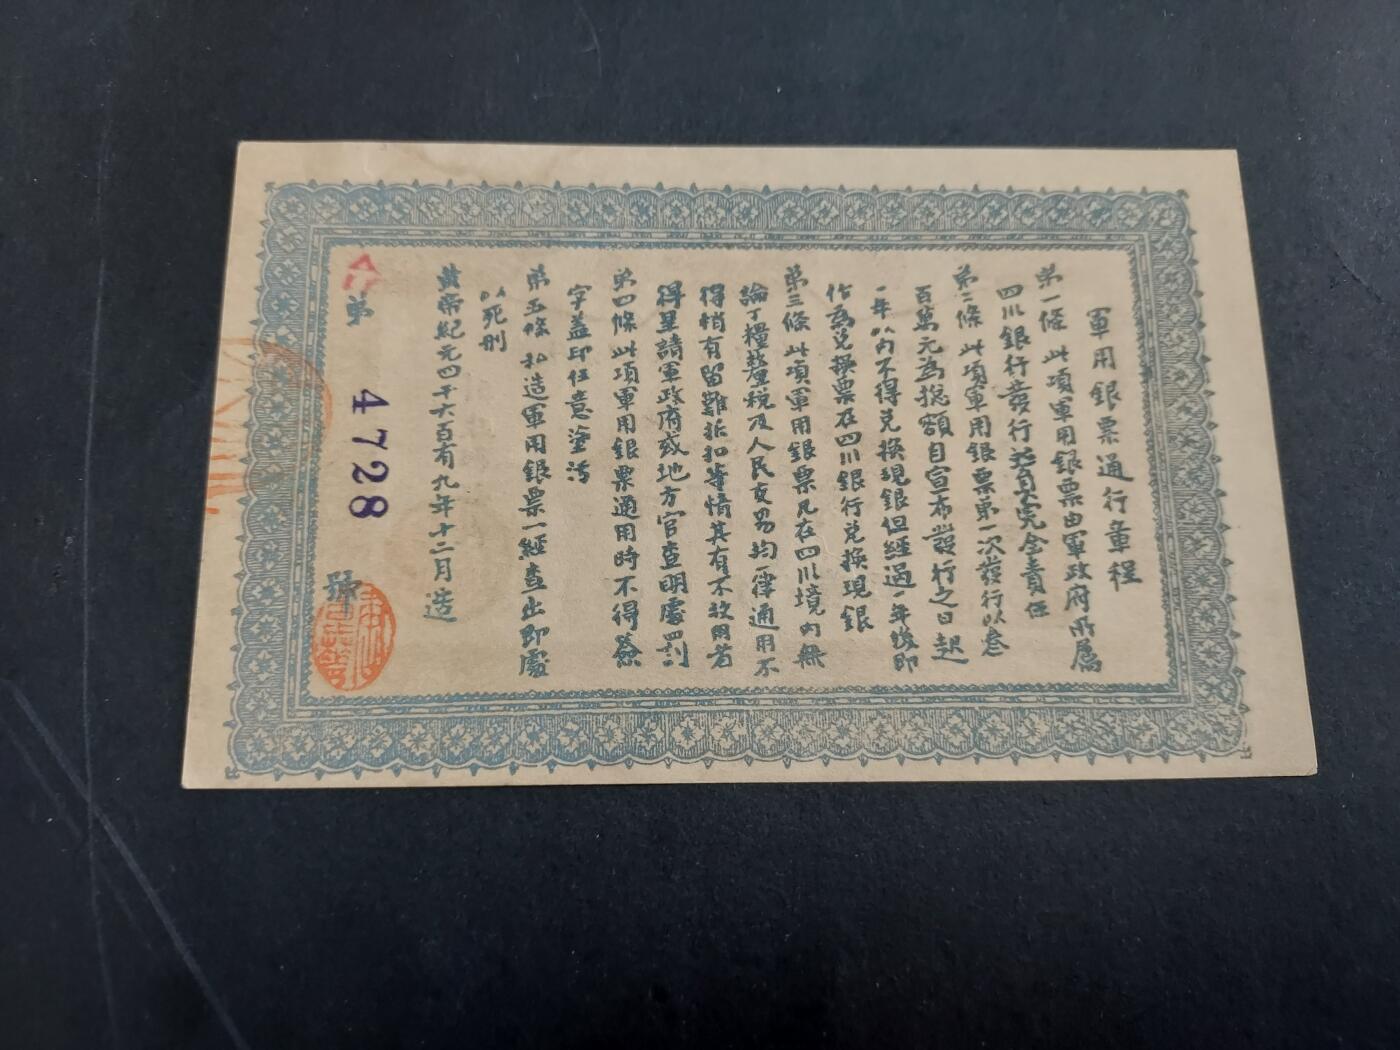 軍用銀票通行章程
第一條 此項軍用銀票由軍政府所屬
四川銀行發行擔負完全責任
第二條 此項軍用銀票第一次發行以叁
百萬元為總額自宣布發行之日起
一年以內不得兌換現銀但經過一年後即
作為兌換票在四川銀行兌換現銀
第三條 此項軍用銀票凡在四川境內無
論丁糧釐稅及人民交易均一律通用不
得稍有留難折扣等情其有不收用者
得呈請軍政府或地方官查明處罰
第四條 此項軍用銀票通用時不得簽
字蓋印任意塗污
第五條 私造軍用銀票一經查出即處
以死刑
黃帝紀元四千六百有九年十二月造
第 4728 號